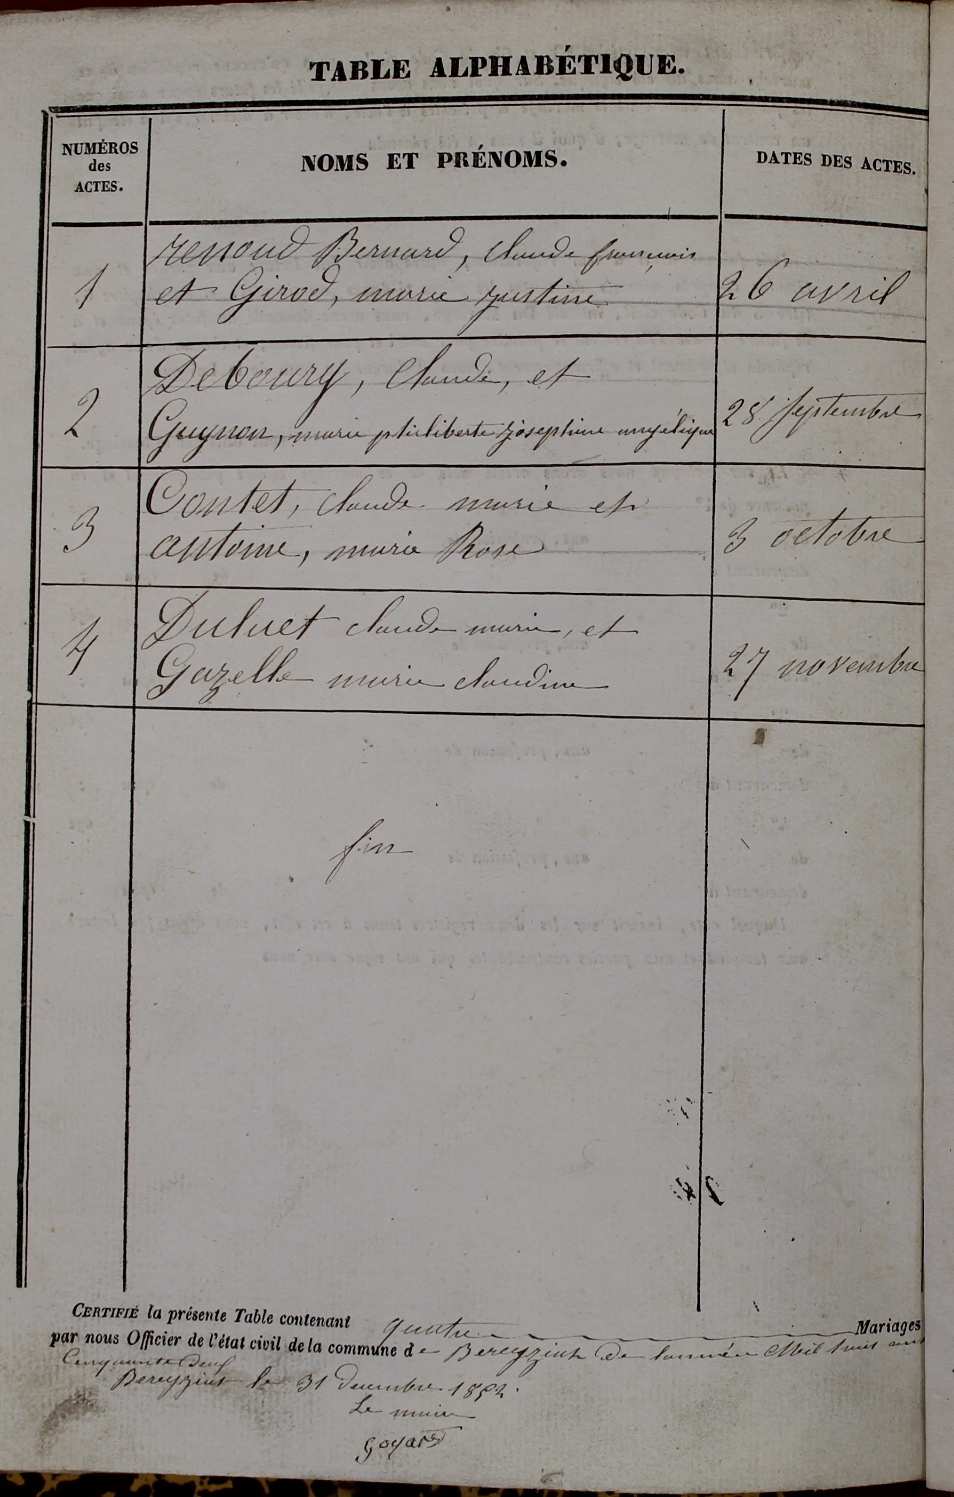 TABLE ALPHABÉTIQUE.
NUMÉROS des ACTES.
NOMS ET PRÉNOMS.
DATES DES ACTES.
1
renoud Bernard, claude françois
et Girod, marie justine
26 avril
2
Deboury, Claude, et
Guynon, marie philiberte josephine angélique
28 septembre
3
Contet, claude marie et
antoine, marie Rose
3 octobre
4
Duluet claude marie, et
Gazelle marie claudine
27 novembre
fin
CERTIFIÉ la présente Table contenant quatre Mariages
par nous Officier de l'état civil de la commune de Bereyziat de l'année Mil huit cent
Cinquante Deux
Bereyziat le 31 decembre 1852.
Le maire
Goyard